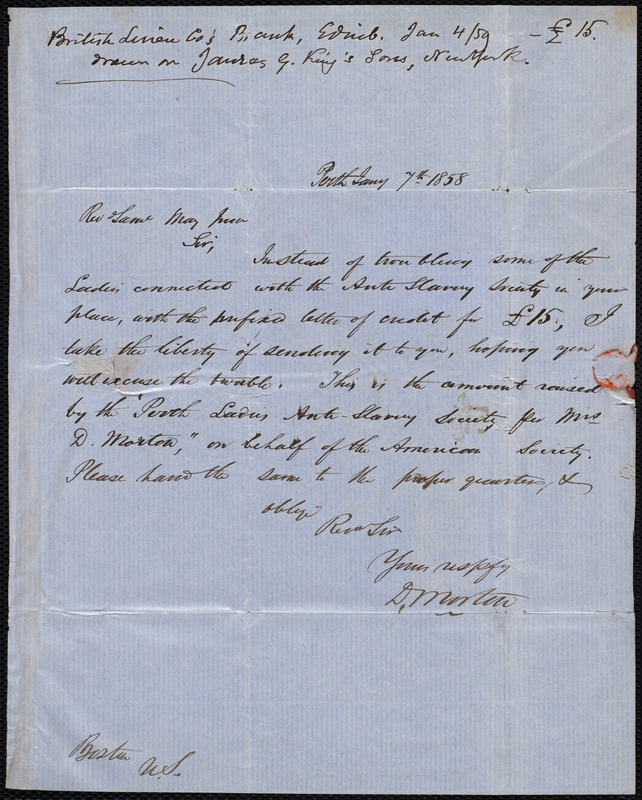 British Linen Co's Bank, Edinb. Jan 4/59 - £15.
drawn on James G. King's Sons, New York.
Perth Jany 7th 1858
Revd Saml May Junr
Sir,
Instead of troubling some of the
Ladies connected with the Anti Slavery Society in your
place, with the prefixed letter of credit for £15, I
take the liberty of sending it to you, hoping you
will excuse the trouble. This is the amount raised
by the Perth Ladies Anti-Slavery Society per Mrs
D. Morton," on behalf of the American Society.
Please hand the same to the proper quarter, &
oblige
Revd Sir
Yours respfy
D. Morton
Boston
U.S.